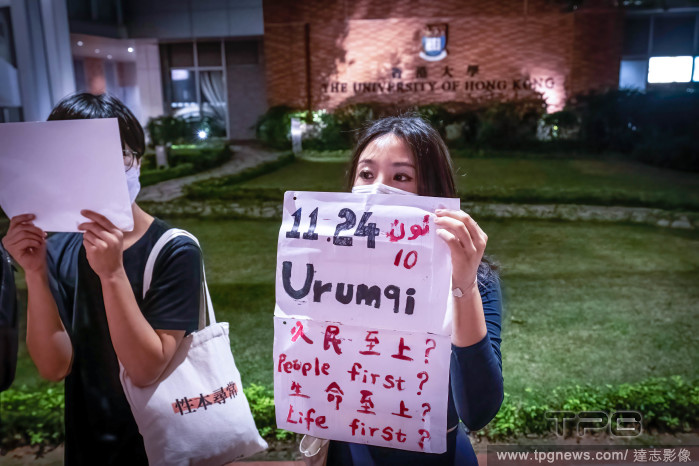 香港大學
THE UNIVERSITY OF HONG KONG
11.24
10
Urumqi
人民至上?
People first?
生命至上?
Life first?
性本尋常
TPG
www.tpgnews.com/ 達志影像